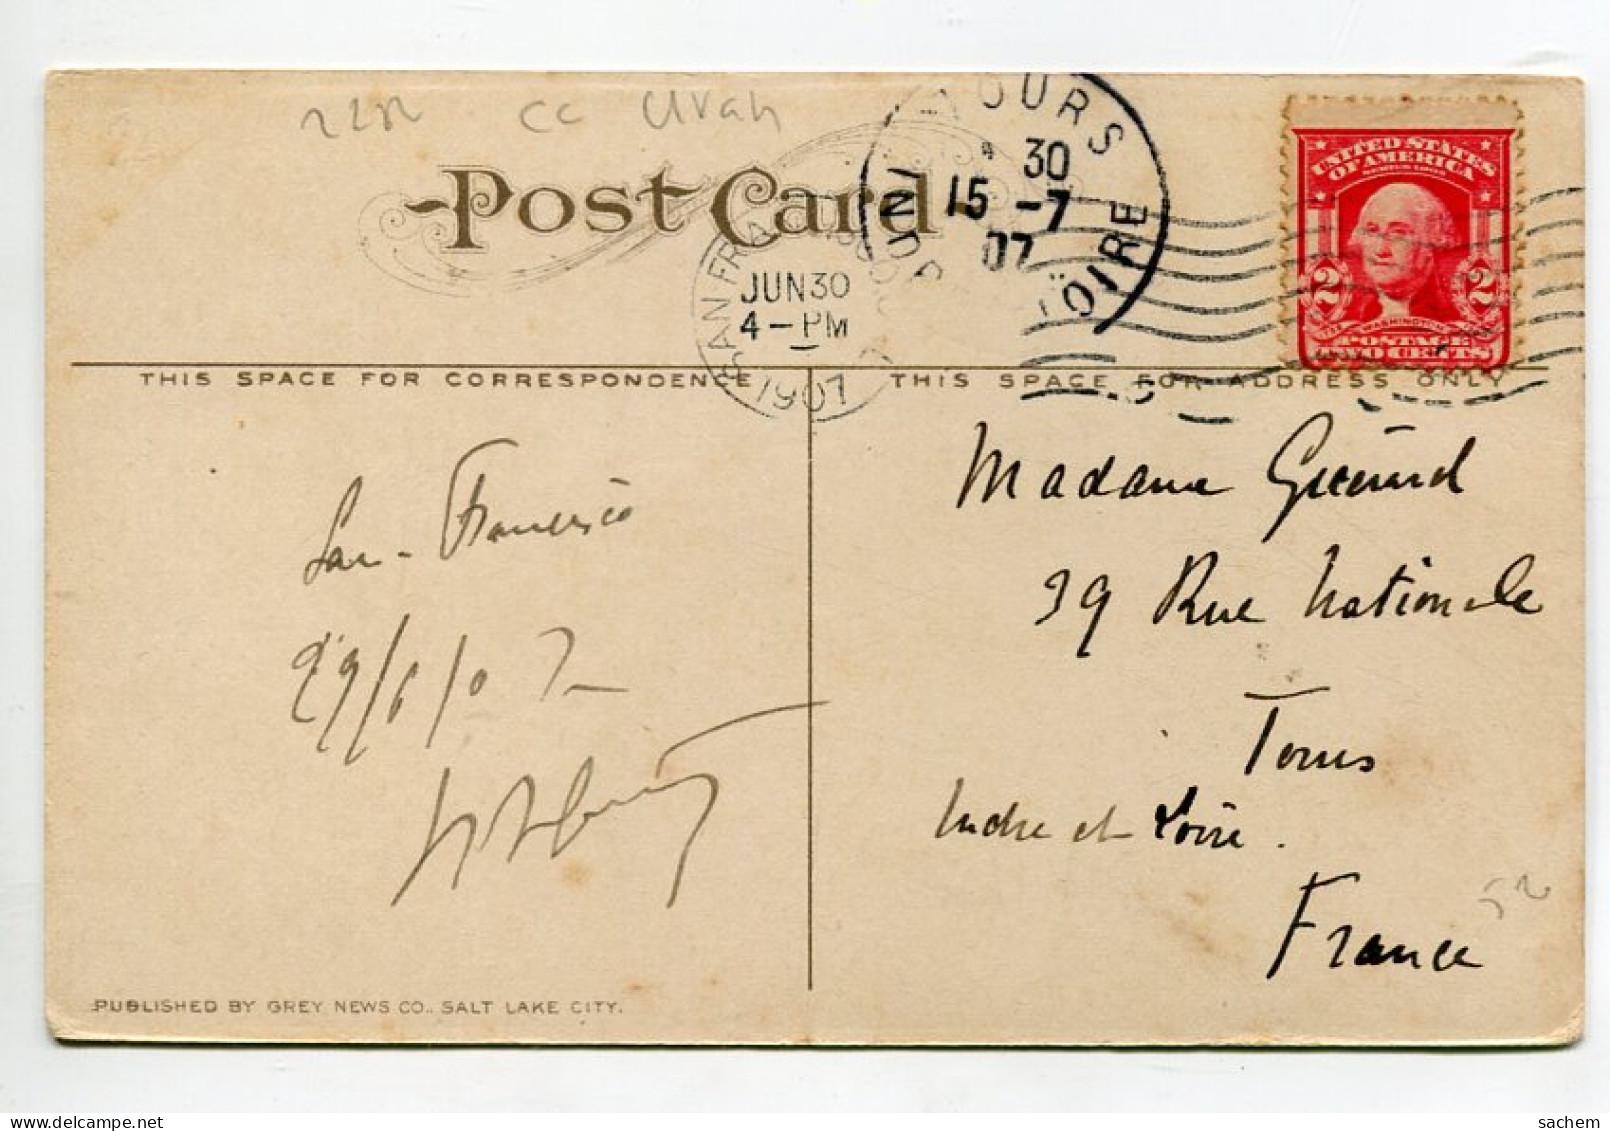 CC Utah
POST CARD
TOURS
30
15 -7
07
LOIRE
SAN FRA
JUN 30
4 - PM
1907
UNITED STATES
OF AMERICA
SERIES 1902
2 2
WASHINGTON
POSTAGE
TWO CENTS
THIS SPACE FOR CORRESPONDENCE
THIS SPACE FOR ADDRESS ONLY
San-Francisco
29/6/07
Madame
39 Rue Nationale
Tours
Indre et Loire.
France
52
PUBLISHED BY GREY NEWS CO., SALT LAKE CITY.
sachem